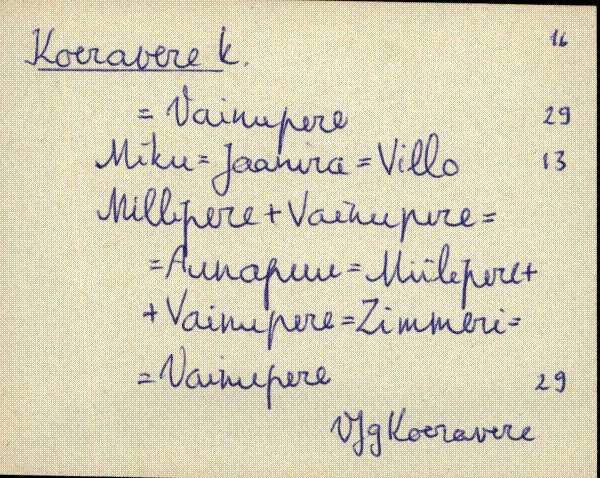 Koeravere k. 16
= Vainupere 29
Miku = Jaanira = Villo 13
Millipere + Vainupere =
= = Miilepere +
+ Vainupere = Zimmeri =
= Vainupere 29
VJg Koeravere